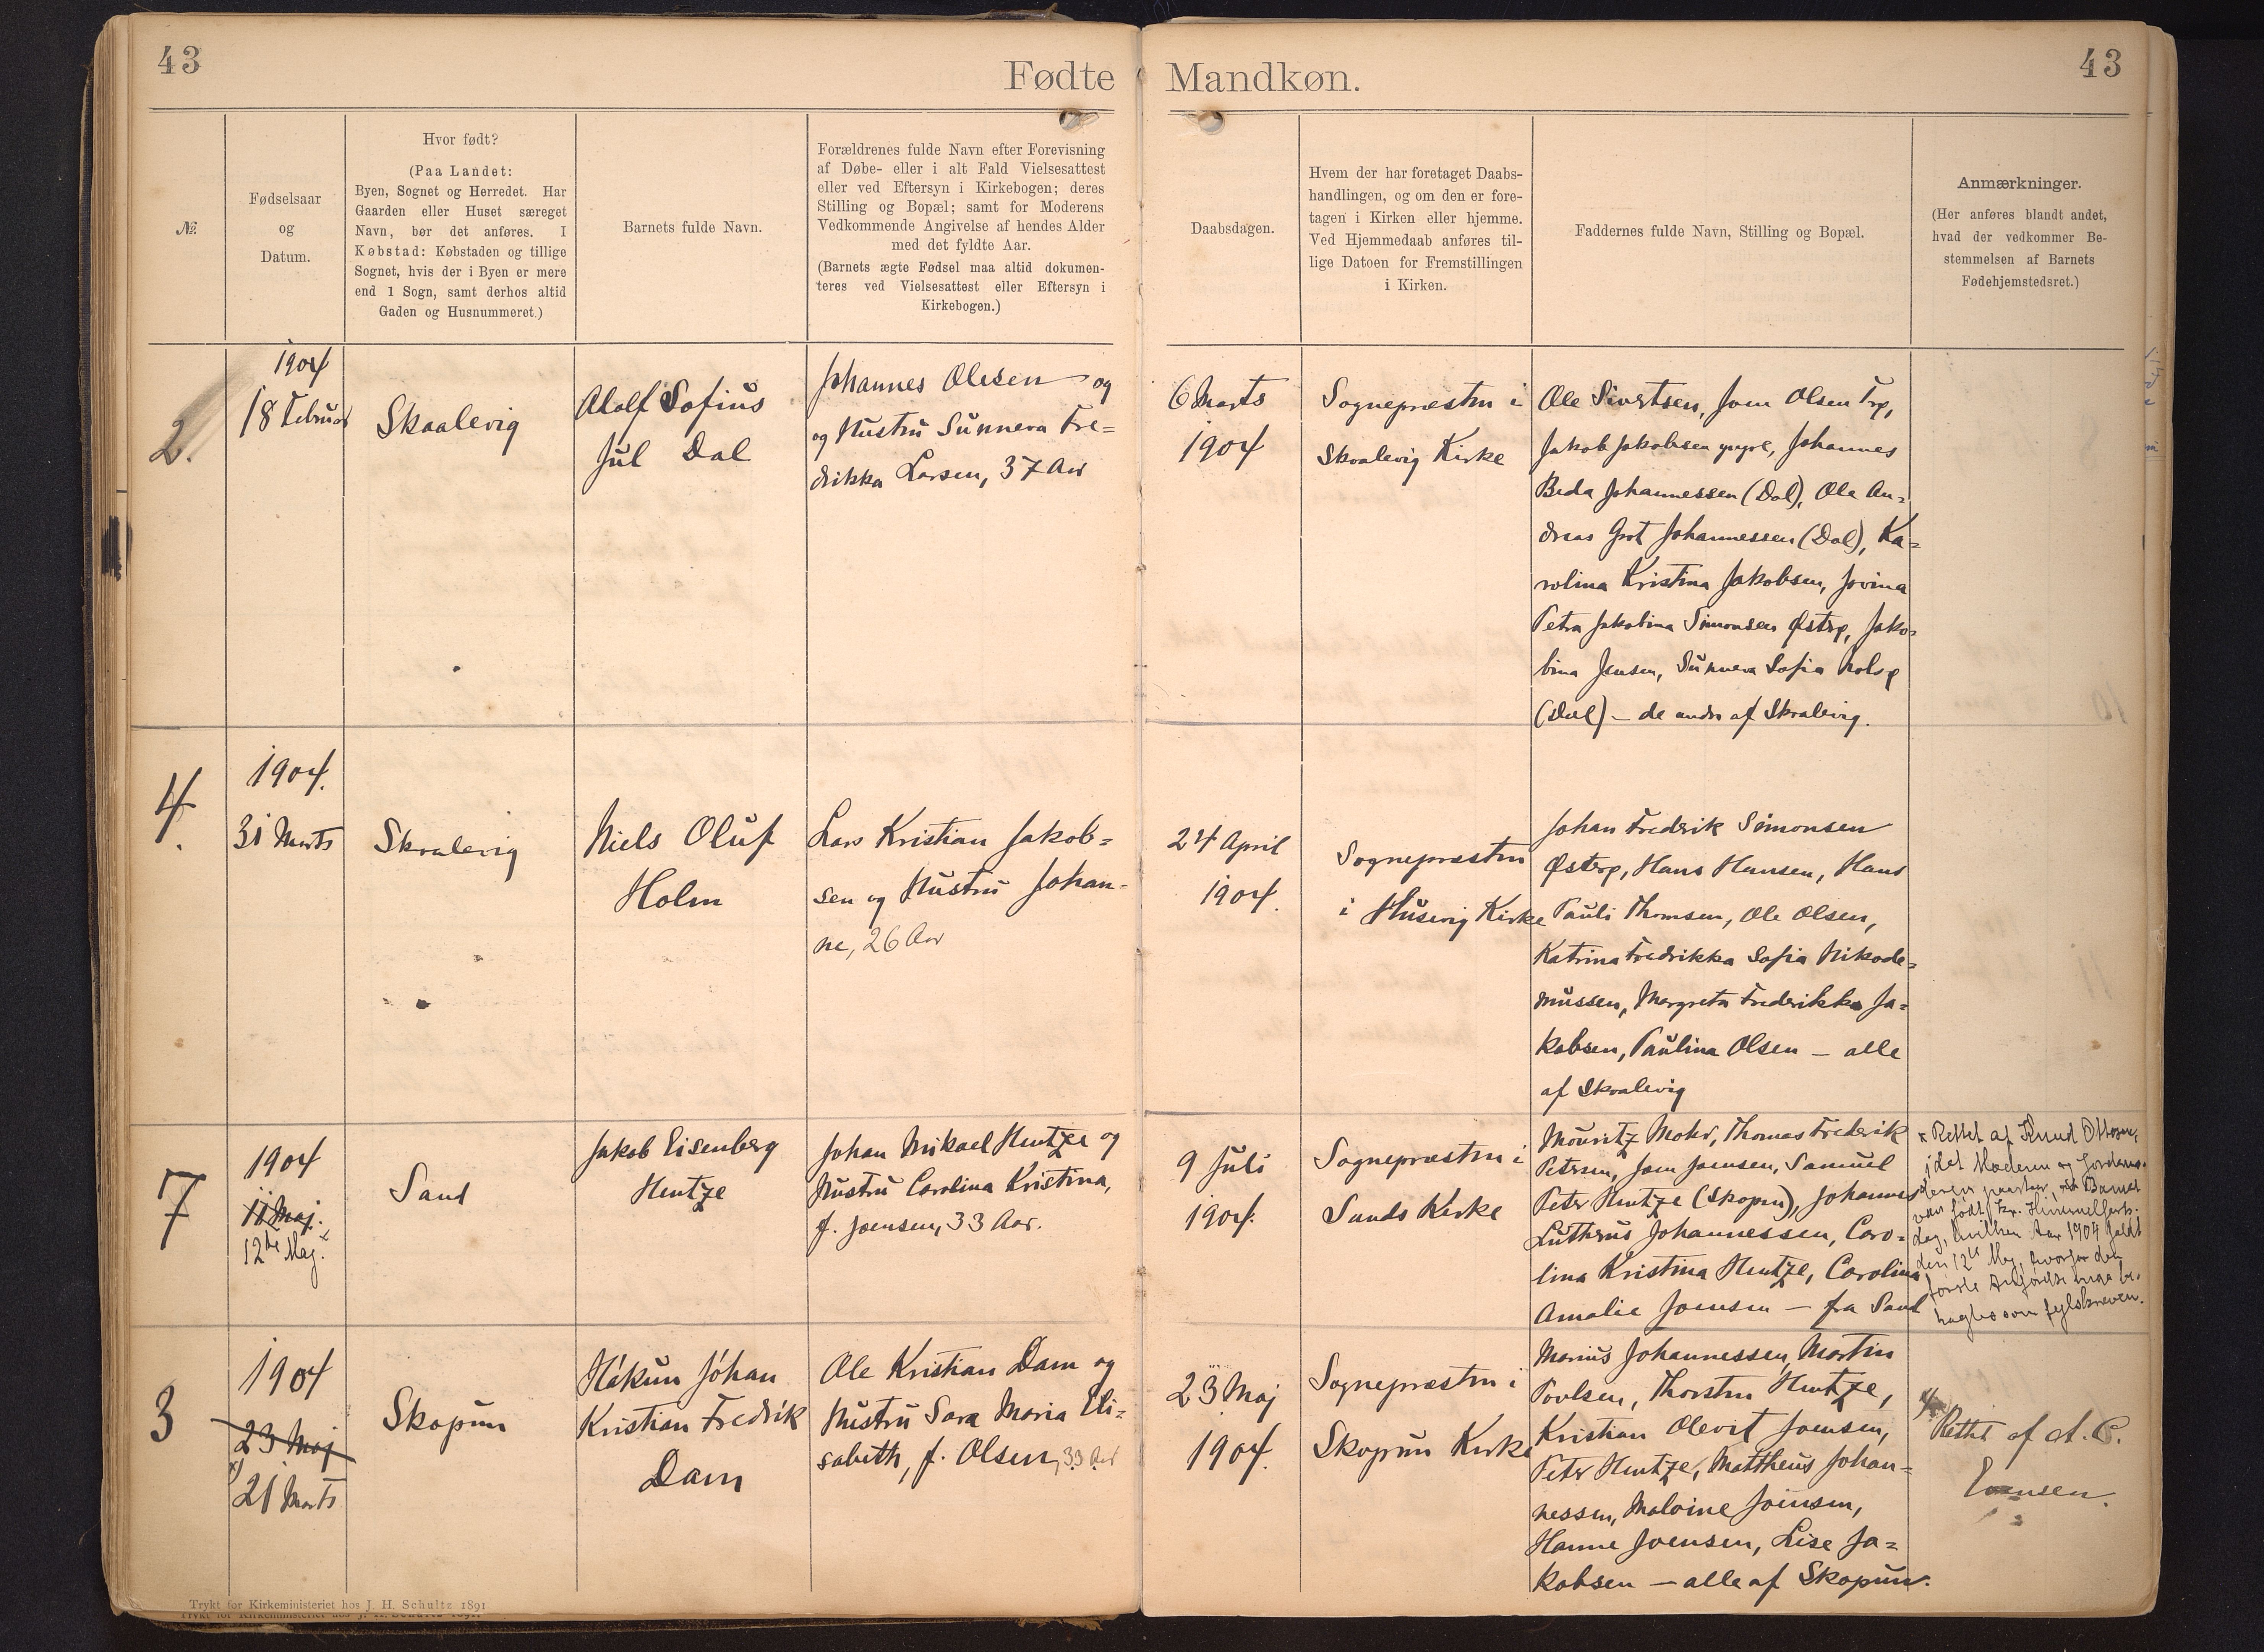 43
Fødte
Mandkøn.
43
№
Fødselsaar
og
Datum.
Hvor født?
(Paa Landet:
Byen, Sognet og Herredet. Har
Gaarden eller Huset særeget
Navn, bør det anføres. I
Købstad: Købstaden og tillige
Sognet, hvis der i Byen er mere
end 1 Sogn, samt derhos altid
Gaden og Husnummeret.)
Barnets fulde Navn.
Forældrenes fulde Navn efter Forevisning
af Døbe- eller i alt Fald Vielsesattest
eller ved Eftersyn i Kirkebogen; deres
Stilling og Bopæl; samt for Moderens
Vedkommende Angivelse af hendes Alder
med det fyldte Aar.
(Barnets ægte Fødsel maa altid dokumen-
teres ved Vielsesattest eller Eftersyn i
Kirkebogen.)
Daabsdagen.
Hvem der har foretaget Daabs-
handlingen, og om den er fore-
tagen i Kirken eller hjemme.
Ved Hjemmedaab anføres til-
lige Datoen for Fremstillingen
i Kirken.
Faddernes fulde Navn, Stilling og Bopæl.
Anmærkninger.
(Her anføres blandt andet,
hvad der vedkommer Be-
stemmelsen af Barnets
Fødehjemstedsret.)
2.
1904
18 Februar
Skaalevig
Adolf Sofius
Jul Dal
Johannes Olesen og
og Hustru Sunneva Fre=
drikka Larsen, 37 Aar
6 Marts
1904
Sognepræsten i
Skaalevig Kirke
Ole Sivertsen, Joen Olsen
Jakob Jakobsen yngre, Johannes
Beda Johannessen (Dal), Ole An=
dreas Grot Johannessen (Dal), Ka=
rolina Kristina Jakobsen, Jovina
Petra Jakobina Simonsen Østrg, Jako=
bina Jensen, Sunneva Sofia
(Dal) – de andre af Skaalevig.
4.
1904.
31 Marts
Skaalevig
Niels Oluf
Holm
Lars Kristian Jakob=
sen og Hustru Johan-
ne, 26 Aar
24 April
1904.
Sognepræsten
i Husevig Kirke
Johan Fredrik Simonsen
Østrg, Hans Hansen, Hans
Pauli Thomsen, Ole Olsen,
Katrina Fredrikka Sofia Nikode=
mussen, Margreta Frederikka Ja=
kobsen, Paulina Olsen – alle
af Skaalevig
7
1904
11 Maj.
12te Maj. x
Sand
Jakob Eisenberg
Hentze
Johan Mikael Hentze og
Hustru Carolina Kristina,
f. Joensen, 33 Aar.
9 Juli
1904.
Sognepræsten i
Sands Kirke
Mouritz Mohr, Thomas Frederik
Petersen, Joen Joensen, Samuel
Peter Hentze (Skopun), Johannes
Lutherus Johannessen, Caro=
lina Kristina Hentze, Carolina
Amalie Joensen – fra Sand
x Rettet af Knud Ottosen,
idet Moderen og Jordemo-
deren paastaar, at Barnet
var født Kr. Himmelfarts-
dag, hvilken Aar 1904 faldt
den 12te Maj, hvorfor den
første Anførelse maa be-
tragtes som fejlskreven.
3
1904
23 Maj
x)
21 Marts
Skopun
Hákun Jóhan
Kristian Fredrik
Dam
Ole Kristian Dam og
Hustru Sara Maria Eli=
sabeth, f. Olsen, 33 Aar
23 Maj
1904.
Sognepræsten i
Skopun Kirke
Marius Johannessen, Martin
Poulsen, Thorsten Hentze,
Kristian Olevit Joensen,
Peter Hentze, Mattheus Johan=
nessen, Malvine Joensen,
Hanne Joensen, Lise Ja=
kobsen – alle af Skopun.
x)
Rettet af A. C.
Evensen.
Trykt for Kirkeministeriet hos J. H. Schultz 1891